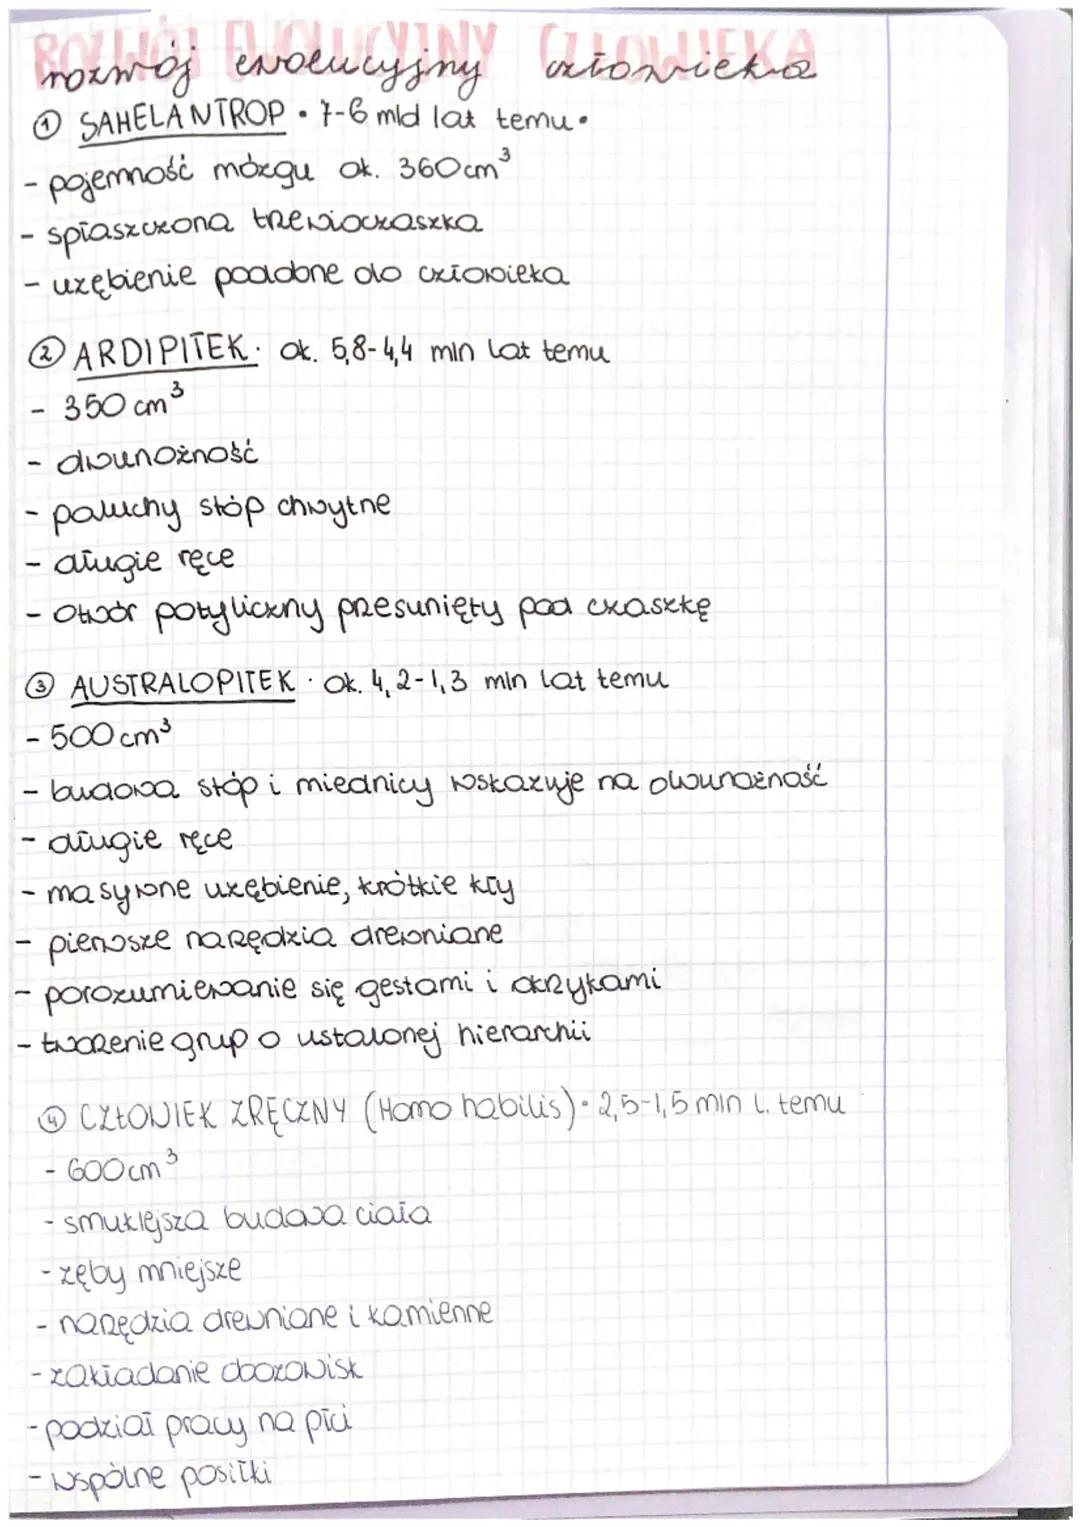 ROZWÓJ EWOLUCYJNY CZŁOWIEKA
rozwój ewolucyjny człowieka
① SAHELANTROP • 7-6 mld lat temu •
- pojemność mózgu ok. 360cm³
- spłaszczona trzewioczaszka
- uzębienie podobne do człowieka
② ARDIPITEK · ok. 5,8-4,4 mln lat temu
- 350 cm³
- dwunożność
- paluchy stóp chwytne
- długie ręce
- otwór potyliczny przesunięty pod czaszkę
③ AUSTRALOPITEK · ok. 4,2-1,3 mln lat temu
- 500 cm³
- budowa stóp i miednicy wskazuje na dwunożność
- długie ręce
- masywne uzębienie, krótkie kły
- pierwsze narzędzia drewniane
- porozumiewanie się gestami i okrzykami
- tworzenie grup o ustalonej hierarchii
④ CZŁOWIEK ZRĘCZNY (Homo habilis) • 2,5-1,5 mln l. temu
- 600cm³
- smuklejsza budowa ciała
- zęby mniejsze
- narzędzia drewniane i kamienne
- zakładanie obozowisk
- podział pracy na płci
- wspólne posiłki